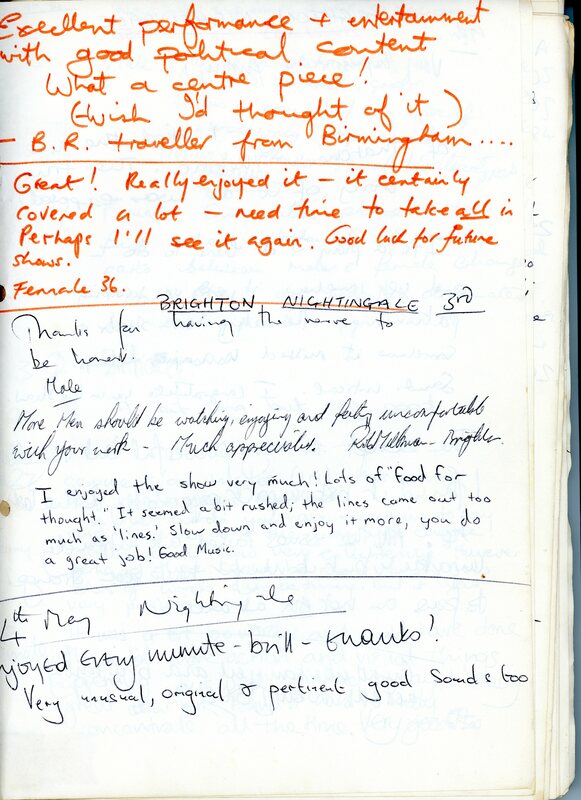 Excellent performance + entertainment
with good political content
What a centre piece!
(Wish I'd thought of it)
- B.R. traveller from Birmingham....
Great! Really enjoyed it - it certainly
covered a lot - need time to take all in
Perhaps I'll see it again. Good luck for future
shows.
Female 36.
BRIGHTON NIGHTINGALE 3rd
Thanks for having the nerve to
be honest.
Male
More Men should be watching, enjoying and feeling uncomfortable
with your work - Much appreciated. Brighton.
I enjoyed the show very much! Lots of "food for
thought." It seemed a bit rushed; the lines came out too
much as 'lines.' Slow down and enjoy it more, you do
a great job! Good Music.
4th May Nightingale
njoyed EVERY minute - brill - thanks!
Very unusual, original & pertinent good Sounds too